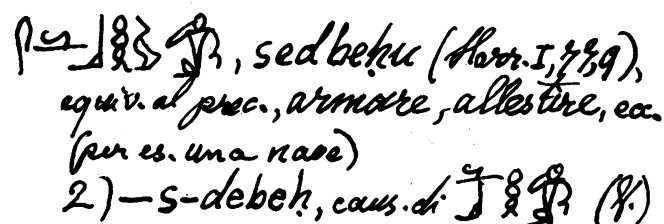 , sedbeḥu (Harr. I, 77,9),
equiv. al prec., armare, allestire, ecc.
(per es. una nave)
2) — s-debeḥ, caus. di (V.)